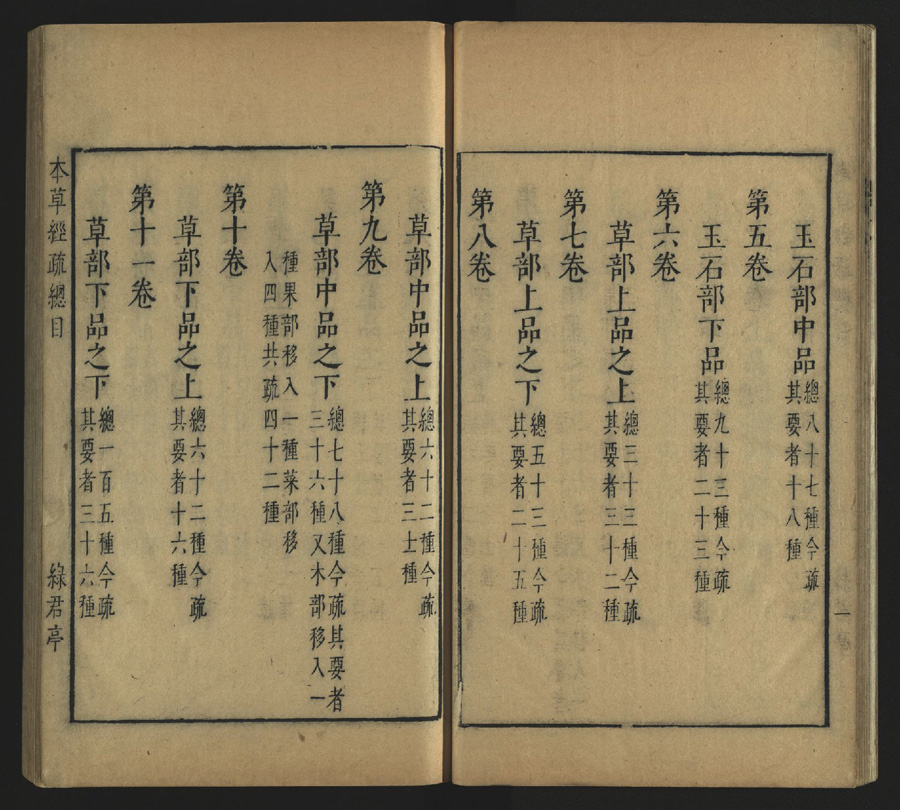 玉石部中品總八十七種今疏其要者十八種
第五卷
玉石部下品總九十三種今疏其要者二十三種
第六卷
草部上品之上總三十三種今疏其要者三十二種
第七卷
草部上品之下總五十三種今疏其要者二十五種
第八卷
草部中品之上總六十二種今疏其要者三士種
第九卷
草部中品之下總七十八種今疏其要者三十六種又木部移入一
種果部移入一種菜部移入四種共疏四十二種
第十卷
草部下品之上總六十二種今疏其要者十六種
第十一卷
草部下品之下總一百五種今疏其要者三十六種
本草經疏總目
綠君亭